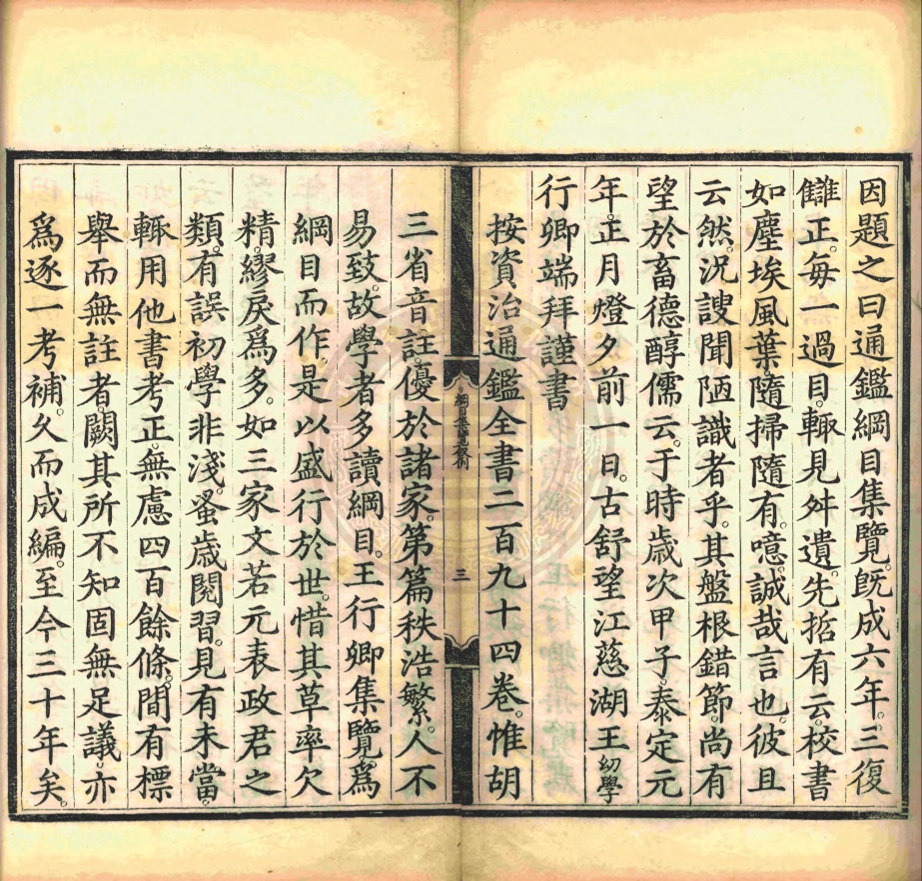 因題之曰通鑑綱目集覽。旣成六年。三復
讎正。每一過目。輙見舛遺。先哲有云。校書
如塵埃風葉隨掃隨有。噫。誠哉言也。彼且
云然。況謏聞陋識者乎。其盤根錯節。尚有
望於畜德醇儒云。于時歳次甲子。泰定元
年。正月燈夕前一日。古舒望江慈湖王幼學
行卿端拜謹書
按資治通鑑全書二百九十四卷。惟胡
三省音註。優於諸家。第篇秩浩繁。人不
易致。故學者多讀綱目。王行卿集覽。爲
綱目而作。是以盛行於世。惜其草率欠
精。繆戾爲多。如三家文若元表政君之
類。有誤初學非淺。蚤歳閱習。見有未當。
輙用他書考正。無慮四百餘條。間有標
舉而無註者。闕其所不知固無足議。亦
爲逐一考補。久而成編。至今三十年矣。
三